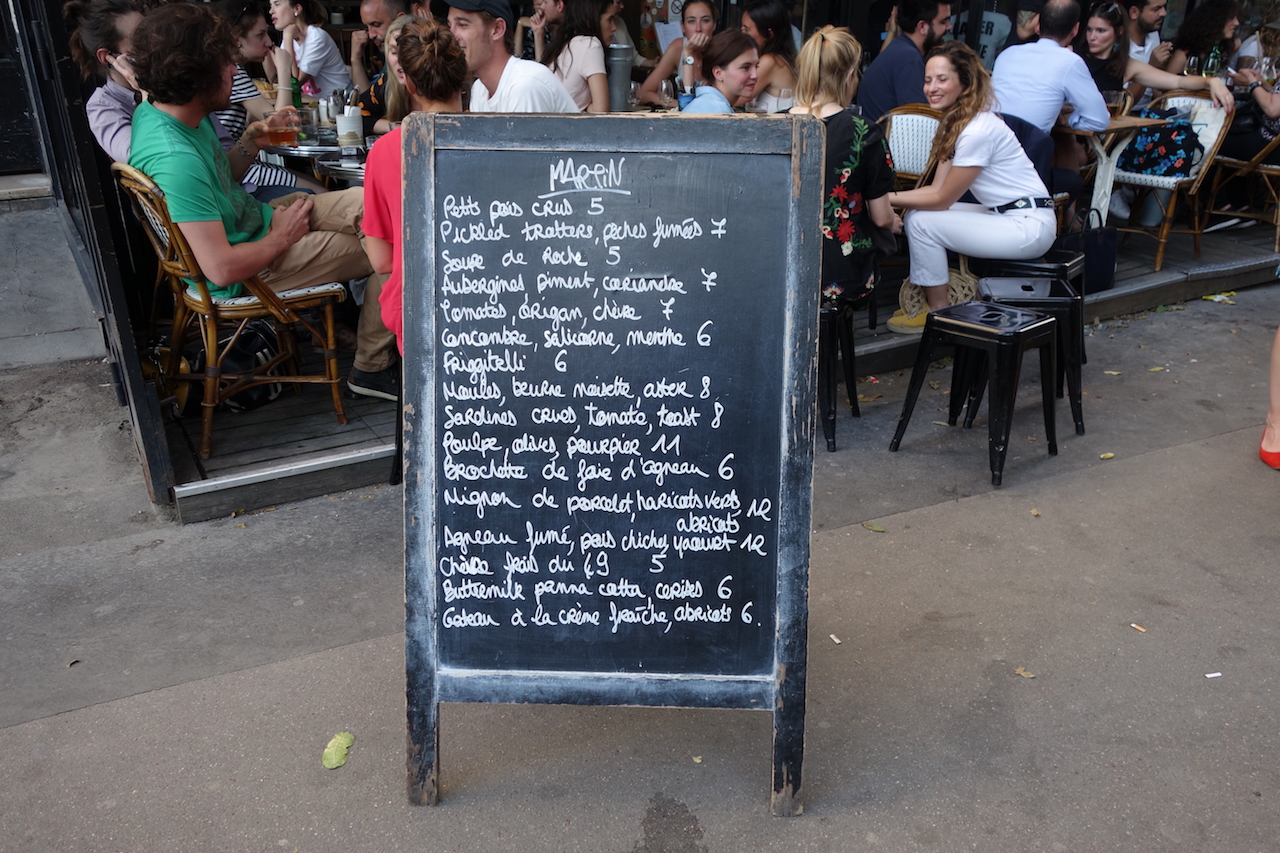 MARTIN
Petits pois crus 5
Pickled tratters, pêches fumées 7
Soupe de Roche 5
Aubergines piment, coriandre 7
Tomates, origan, chèvre 7
Concombre, salicorne, menthe 6
Friggitelli 6
Moules, beurre noisette, aster 8
Sardines crues, tomate, toast 8
Poulpe, olives, pourpier 11
Brochette de foie d'agneau 6
Mignon de porcelet, haricots verts, 12
abricots
Agneau fumé, pois chiches, yaourt 12
Chèvre frais du 49 5
Buttermilk panna cotta, cerises 6
Gateau à la crème fraîche, abricots 6.